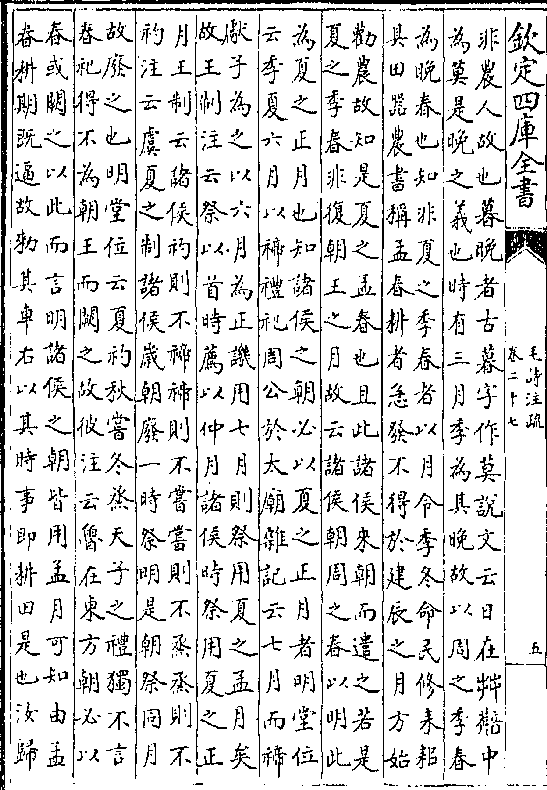 欽定四庫全書
毛詩注疏
卷二十七
五
非農人故也暮晚者古暮字作莫說文云日在茻中
為莫是晚之義也時有三月季為其晚故以周之季春
為晚春也知非夏之季春者以月令季冬命民修耒耜
其田器農書稱孟春耕者急發不得於建辰之月方始
勸農故知是夏之孟春也且此諸侯來朝而遣之若是
夏之季春非復朝王之月故云諸侯朝周之春以明此
為夏之正月也知諸侯之朝必以夏之正月者明堂位
云季夏六月以禘禮祀周公於太廟雜記云七月而禘
獻子為之以六月為正譏用七月則祭用夏之孟月矣
故王制注云祭以首時薦以仲月諸侯時祭用夏之正
月王制云諸侯礿則不禘禘則不嘗嘗則不烝烝則不
礿注云虞夏之制諸侯歲朝廢一時祭明是朝祭同月
故廢之也明堂位云夏礿秋嘗冬烝天子之禮獨不言
春祀得不為朝王而闕之故彼注云魯在東方朝必以
春或闕之以此而言明諸侯之朝皆用孟月可知由孟
春耕期既逼故勑其車右以其時事即耕田是也汝歸